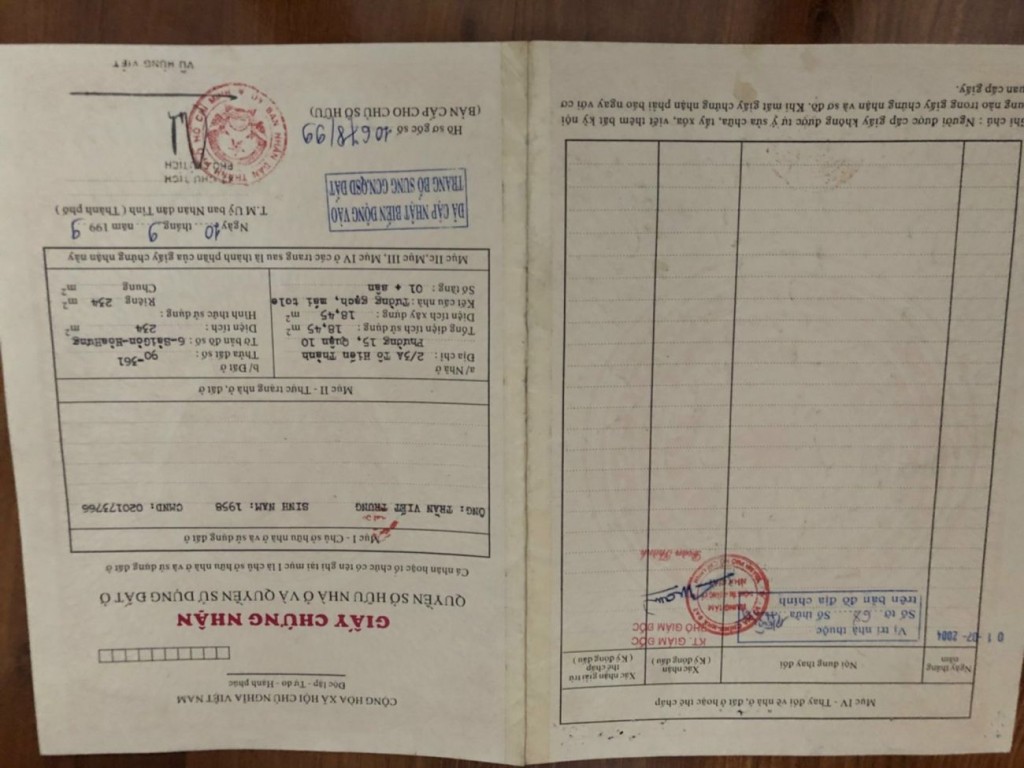 CỘNG HÒA XÃ HỘI CHỦ NGHĨA VIỆT NAM
Độc lập - Tự do - Hạnh phúc
GIẤY CHỨNG NHẬN
QUYỀN SỞ HỮU NHÀ Ở VÀ QUYỀN SỬ DỤNG ĐẤT Ở
Cá nhân hoặc tổ chức có tên ghi tại mục I là chủ sở hữu nhà ở và sử dụng đất ở
Mục I - Chủ sở hữu nhà ở và sử dụng đất ở
ÔNG: TRẦN VIẾT TRUNG SINH NĂM: 1958 CMND: 020173766
Mục II - Thực trạng nhà ở, đất ở
a/ Nhà ở
Địa chỉ: 2/5A Tô Hiến Thành
Phường 15, Quận 10
Tổng diện tích sử dụng: 18,45 m²
Diện tích xây dựng: 18,45 m²
Kết cấu nhà: Tường gạch, mái tole
Số tầng: 01 + sân
b/ Đất ở
Thửa đất số: 90-361
Tờ bản đồ số: 6-SàiGòn-HòaHưng
Diện tích: 234 m²
Hình thức sử dụng:
Riêng 234 m²
Chung m²
Mục IIc, Mục III, Mục IV ở các trang sau là thành phần của giấy chứng nhận này
Ngày 10 tháng 9 năm 1999
T.M Uỷ ban Nhân Dân Tỉnh (Thành phố)
ĐÃ CẬP NHẬT BIẾN ĐỘNG VÀO
TRANG BỔ SUNG GCNQSD ĐẤT
CHỦ TỊCH
PHÓ CHỦ TỊCH
ỦY BAN NHÂN DÂN THÀNH PHỐ HỒ CHÍ MINH
Hồ sơ gốc số 10678/99
(BẢN CẤP CHO CHỦ SỞ HỮU)
VŨ HÙNG VIỆT
Mục IV - Thay đổi về nhà ở, đất ở hoặc thế chấp
Ngày tháng năm
Nội dung thay đổi
Xác nhận (Ký đóng dấu)
Xác nhận giải trừ thế chấp (Ký đóng dấu)
01-07-2004
Vị trí nhà thuộc
Số tờ 62 Số thửa
trên bản đồ địa chính
KT. GIÁM ĐỐC
PHÓ GIÁM ĐỐC
Ghi chú : Người được cấp giấy không được tự ý sửa chữa, tẩy xóa, viết thêm bất kỳ nội
dung nào trong giấy chứng nhận và sơ đồ. Khi mất giấy chứng nhận phải báo ngay với cơ
quan cấp giấy.